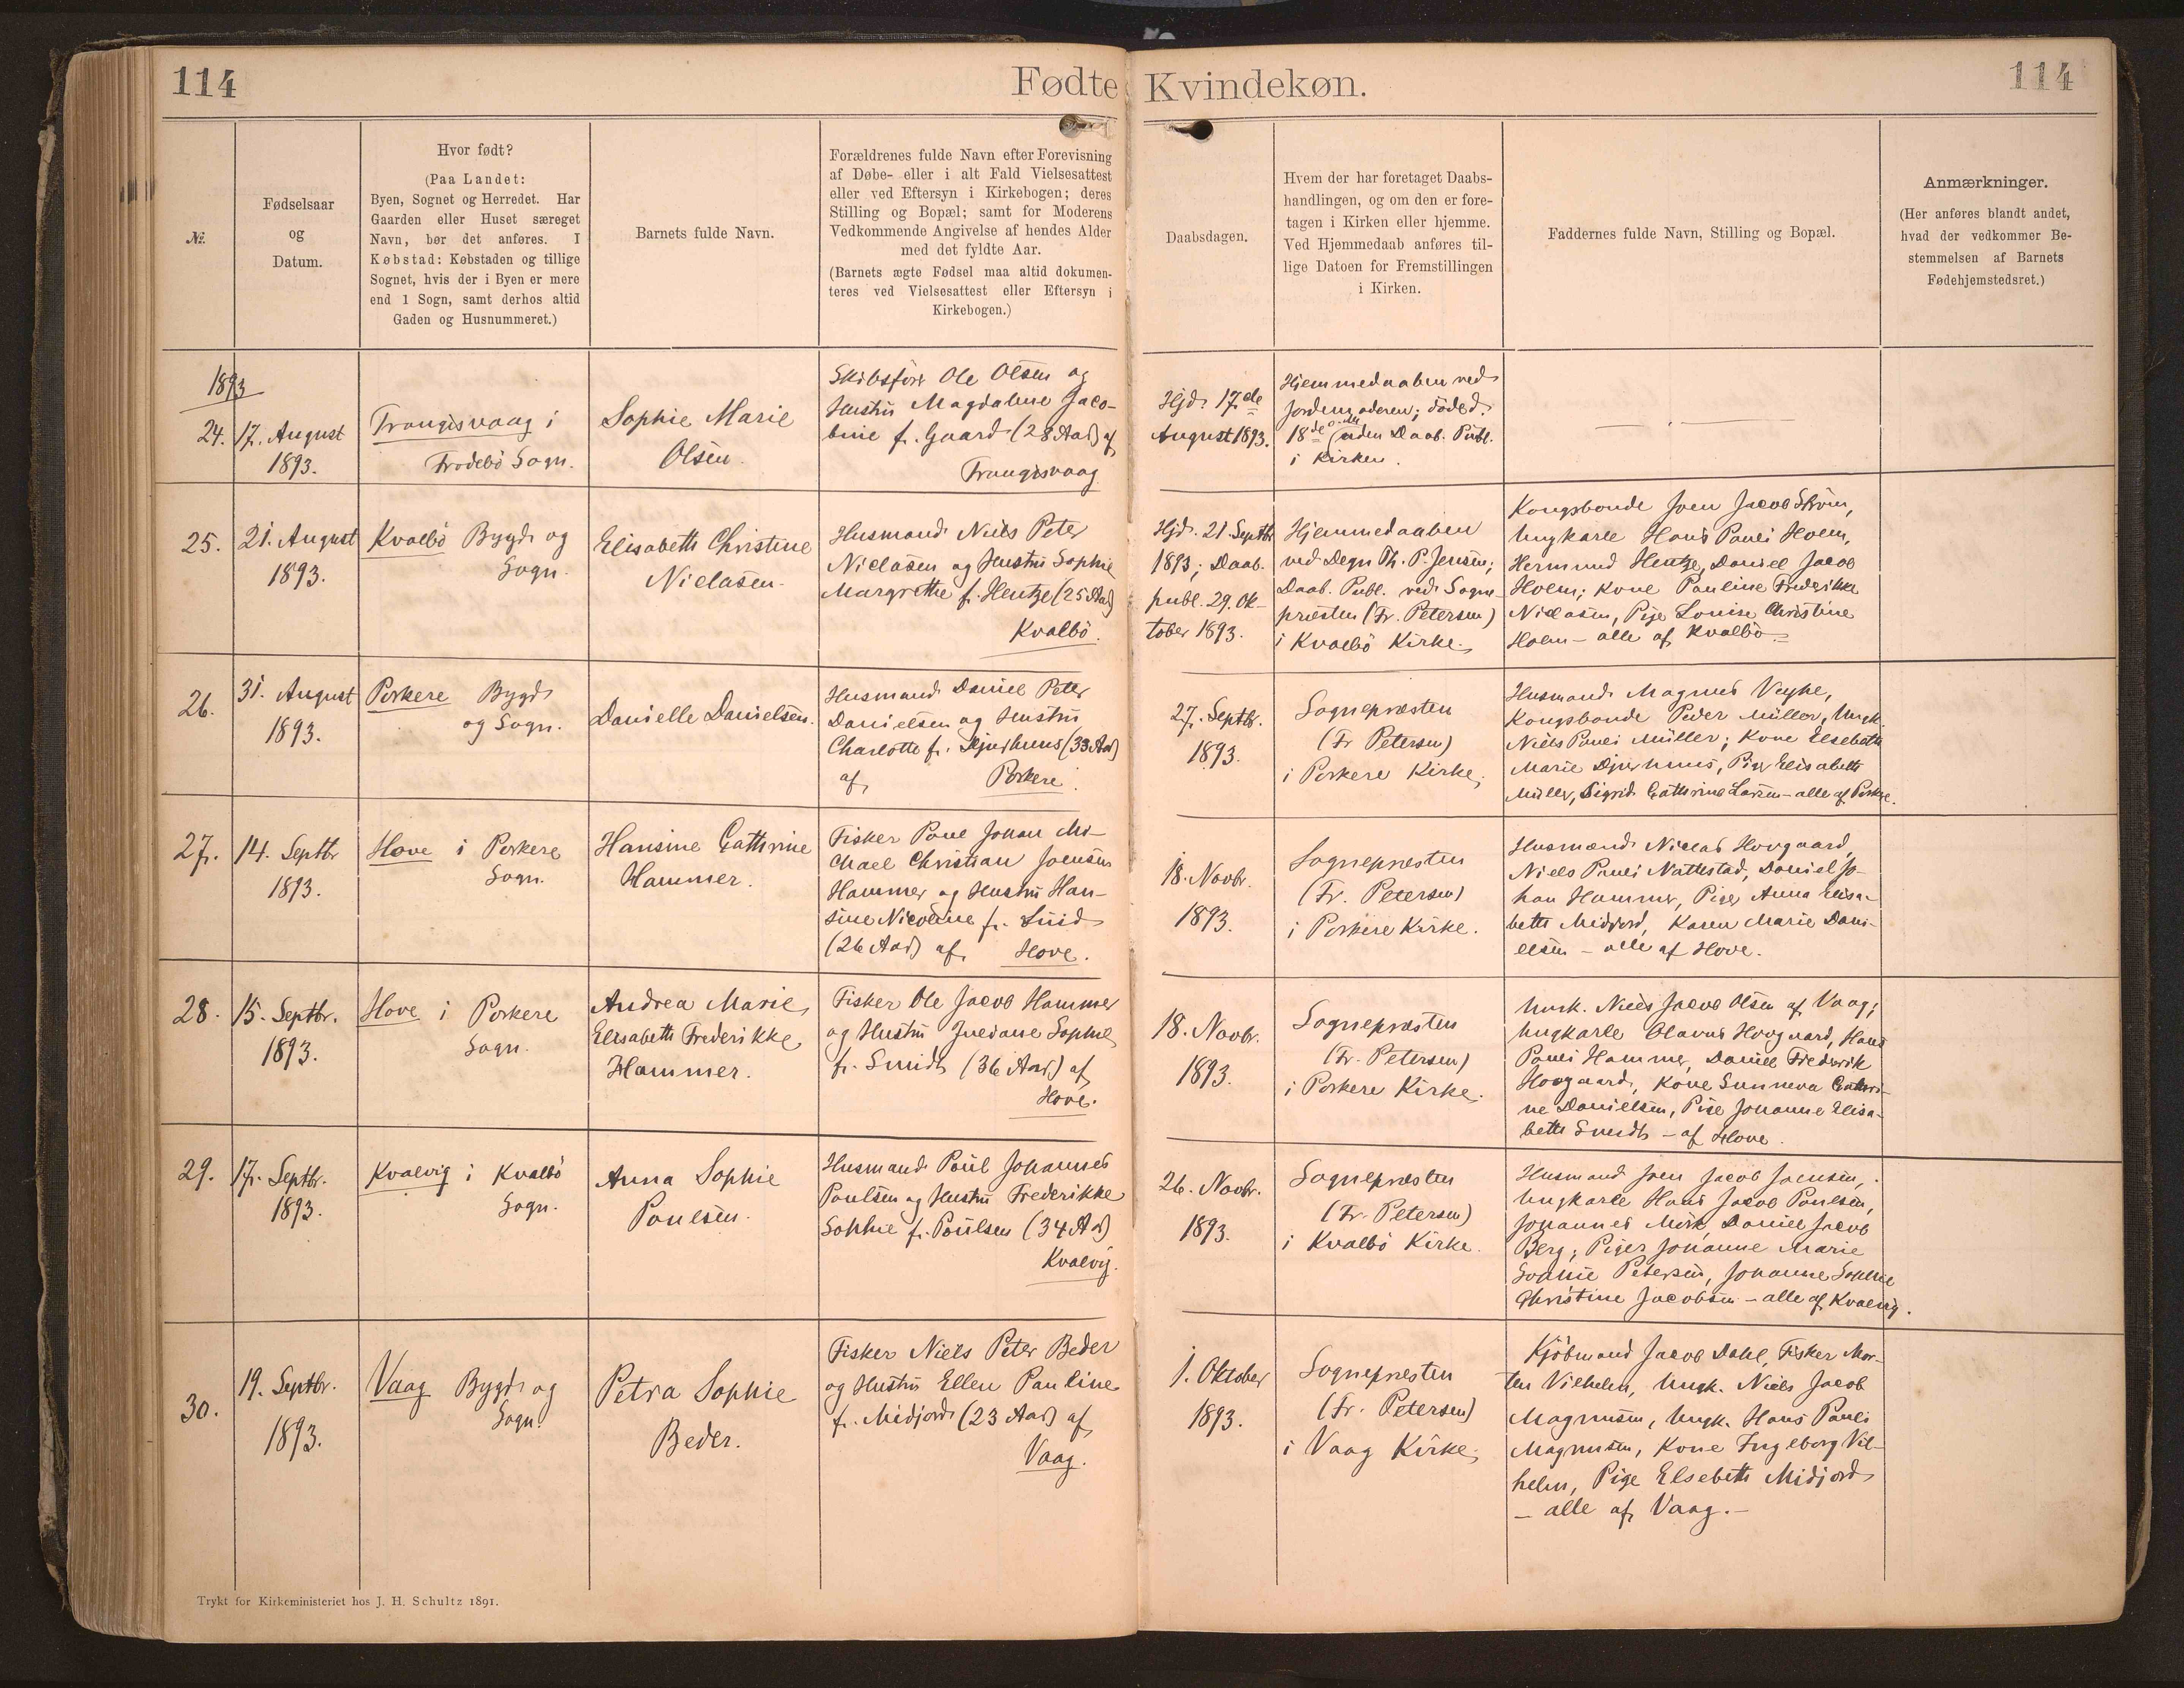 114
Fødte Kvindekøn.
114
№
Fødselsaar
og
Datum.
Hvor født?
(Paa Landet:
Byen, Sognet og Herredet. Har
Gaarden eller Huset særeget
Navn, bør det anføres. I
Købstad: Købstaden og tillige
Sognet, hvis der i Byen er mere
end 1 Sogn, samt derhos altid
Gaden og Husnummeret.)
Barnets fulde Navn.
Forældrenes fulde Navn efter Forevisning
af Døbe- eller i alt Fald Vielsesattest
eller ved Eftersyn i Kirkebogen; deres
Stilling og Bopæl; samt for Moderens
Vedkommende Angivelse af hendes Alder
med det fyldte Aar.
(Barnets ægte Fødsel maa altid dokumen-
teres ved Vielsesattest eller Eftersyn i
Kirkebogen.)
Daabsdagen.
Hvem der har foretaget Daabs-
handlingen, og om den er fore-
tagen i Kirken eller hjemme.
Ved Hjemmedaab anføres til-
lige Datoen for Fremstillingen
i Kirken.
Faddernes fulde Navn, Stilling og Bopæl.
Anmærkninger.
(Her anføres blandt andet,
hvad der vedkommer Be-
stemmelsen af Barnets
Fødehjemstedsret.)
1893
24.
17. August
1893.
Trangisvaag i
Frodebö Sogn.
Sophie Marie
Olsen.
Skibsförer Ole Olsen og
Hustru Magdalene Jaco-
bine f. Gaard (28 Aar) af
Trangisvaag
Hjd. 17de
August 1893.
Hjemmedaaben ved
Jordemoderen; död d.
18de uden Daab. Publ.
i Kirken.
25.
21. August
1893.
Kvalbö Bygd og
Sogn.
Elisabeth Christine
Niclasen.
Husmand Niels Peter
Niclasen og Hustru Sophie
Margrethe f. Hentze (25 Aar)
Kvalbö.
Hjd. 21. Septbr
1893; Daab.
publ. 29. Ok-
tober 1893.
Hjemmedaaben
ved Degn Th. P. Jensen;
Daab. Publ. ved Sogne-
præsten (Fr. Petersen)
i Kvalbö Kirke.
Kongsbonde Joen Jacob Ström,
Ungkarle Hans Pauli Holm,
Hermund Hentze, Daniel Jacob
Holm; Kone Pauline Frederikke
Niclasen, Pige Louise Christine
Holm - alle af Kvalbö.
26.
31. August
1893.
Porkere Bygd
og Sogn.
Danielle Danielsen.
Husmand Daniel Peter
Danielsen og Hustru
Charlotte f. Djurhuus (33 Aar)
af Porkere.
27. Septbr.
1893.
Sognepræsten
(Fr Petersen)
i Porkere Kirke.
Husmand Magnus Veyhe,
Kongsbonde Peder Müller, Ungk.
Niels Pauli Müller; Kone Elsebeth
Marie Djurhuus, Piger Elisabeth
Müller, Sigrid Cathrine Larsen - alle af Porkere.
27.
14. Septbr
1893.
Hove i Porkere
Sogn.
Hansine Cathrine
Hammer.
Fisker Poul Johan Mi-
chael Christian Joensen
Hammer og Hustru Han-
sine Nicoline f. Smid
(26 Aar) af Hove.
18. Novbr.
1893.
Sognepræsten
(Fr. Petersen)
i Porkere Kirke.
Husmænd Niclas Hovgaard,
Niels Pauli Nattestad, Daniel Jo-
han Hammer, Piger Anna Elisa-
beth Midjord, Karen Marie Dani-
elsen - alle af Hove.
28.
15. Septbr.
1893.
Hove i Porkere
Sogn.
Andrea Marie
Elisabeth Frederikke
Hammer.
Fisker Ole Jacob Hammer
og Hustru Sophie
f. Smidt (36 Aar) af
Hove.
18. Novbr.
1893.
Sognepræsten
(Fr. Petersen)
i Porkere Kirke.
Ungk. Niels Jacob Olsen af Vaag;
Ungkarle Olavus Hovgaard, Hans
Pauli Hammer, Daniel Frederik
Hovgaard, Kone Sunneva Cathri-
ne Danielsen, Pige Johanne Elisa-
beth Smidt - af Hove.
29.
17. Septbr.
1893.
Kvalvig i Kvalbö
Sogn.
Anna Sophie
Poulsen.
Husmand Poul Johannes
Poulsen og Hustru Frederikke
Sophie f. Poulsen (34 Aar)
Kvalvig.
26. Novbr.
1893.
Sognepræsten
(Fr. Petersen)
i Kvalbö Kirke.
Husmand Joen Jacob Joensen,
Ungkarle Hans Jacob Poulsen,
Johannes Mörk, Daniel Jacob
Berg; Piger Johanne Marie
Sophie Petersen, Johanne Sophie
Christine Jacobsen - alle af Kvalvig.
30.
19. Septbr.
1893.
Vaag Bygd og
Sogn.
Petra Sophie
Beder.
Fisker Niels Peter Beder
og Hustru Ellen Pauline
f. Midjord (23 Aar) af
Vaag.
1. Oktober
1893.
Sognepræsten
(Fr. Petersen)
i Vaag Kirke.
Kjöbmand Jacob Dahl, Fisker Mor-
ten Vilhelm, Ungk. Niels Jacob
Magnusen, Ungk. Hans Pauli
Magnusen, Kone Ingeborg Vil-
helm, Pige Elsebeth Midjord
- alle af Vaag. -
Trykt for Kirkeministeriet hos J. H. Schultz 1891.